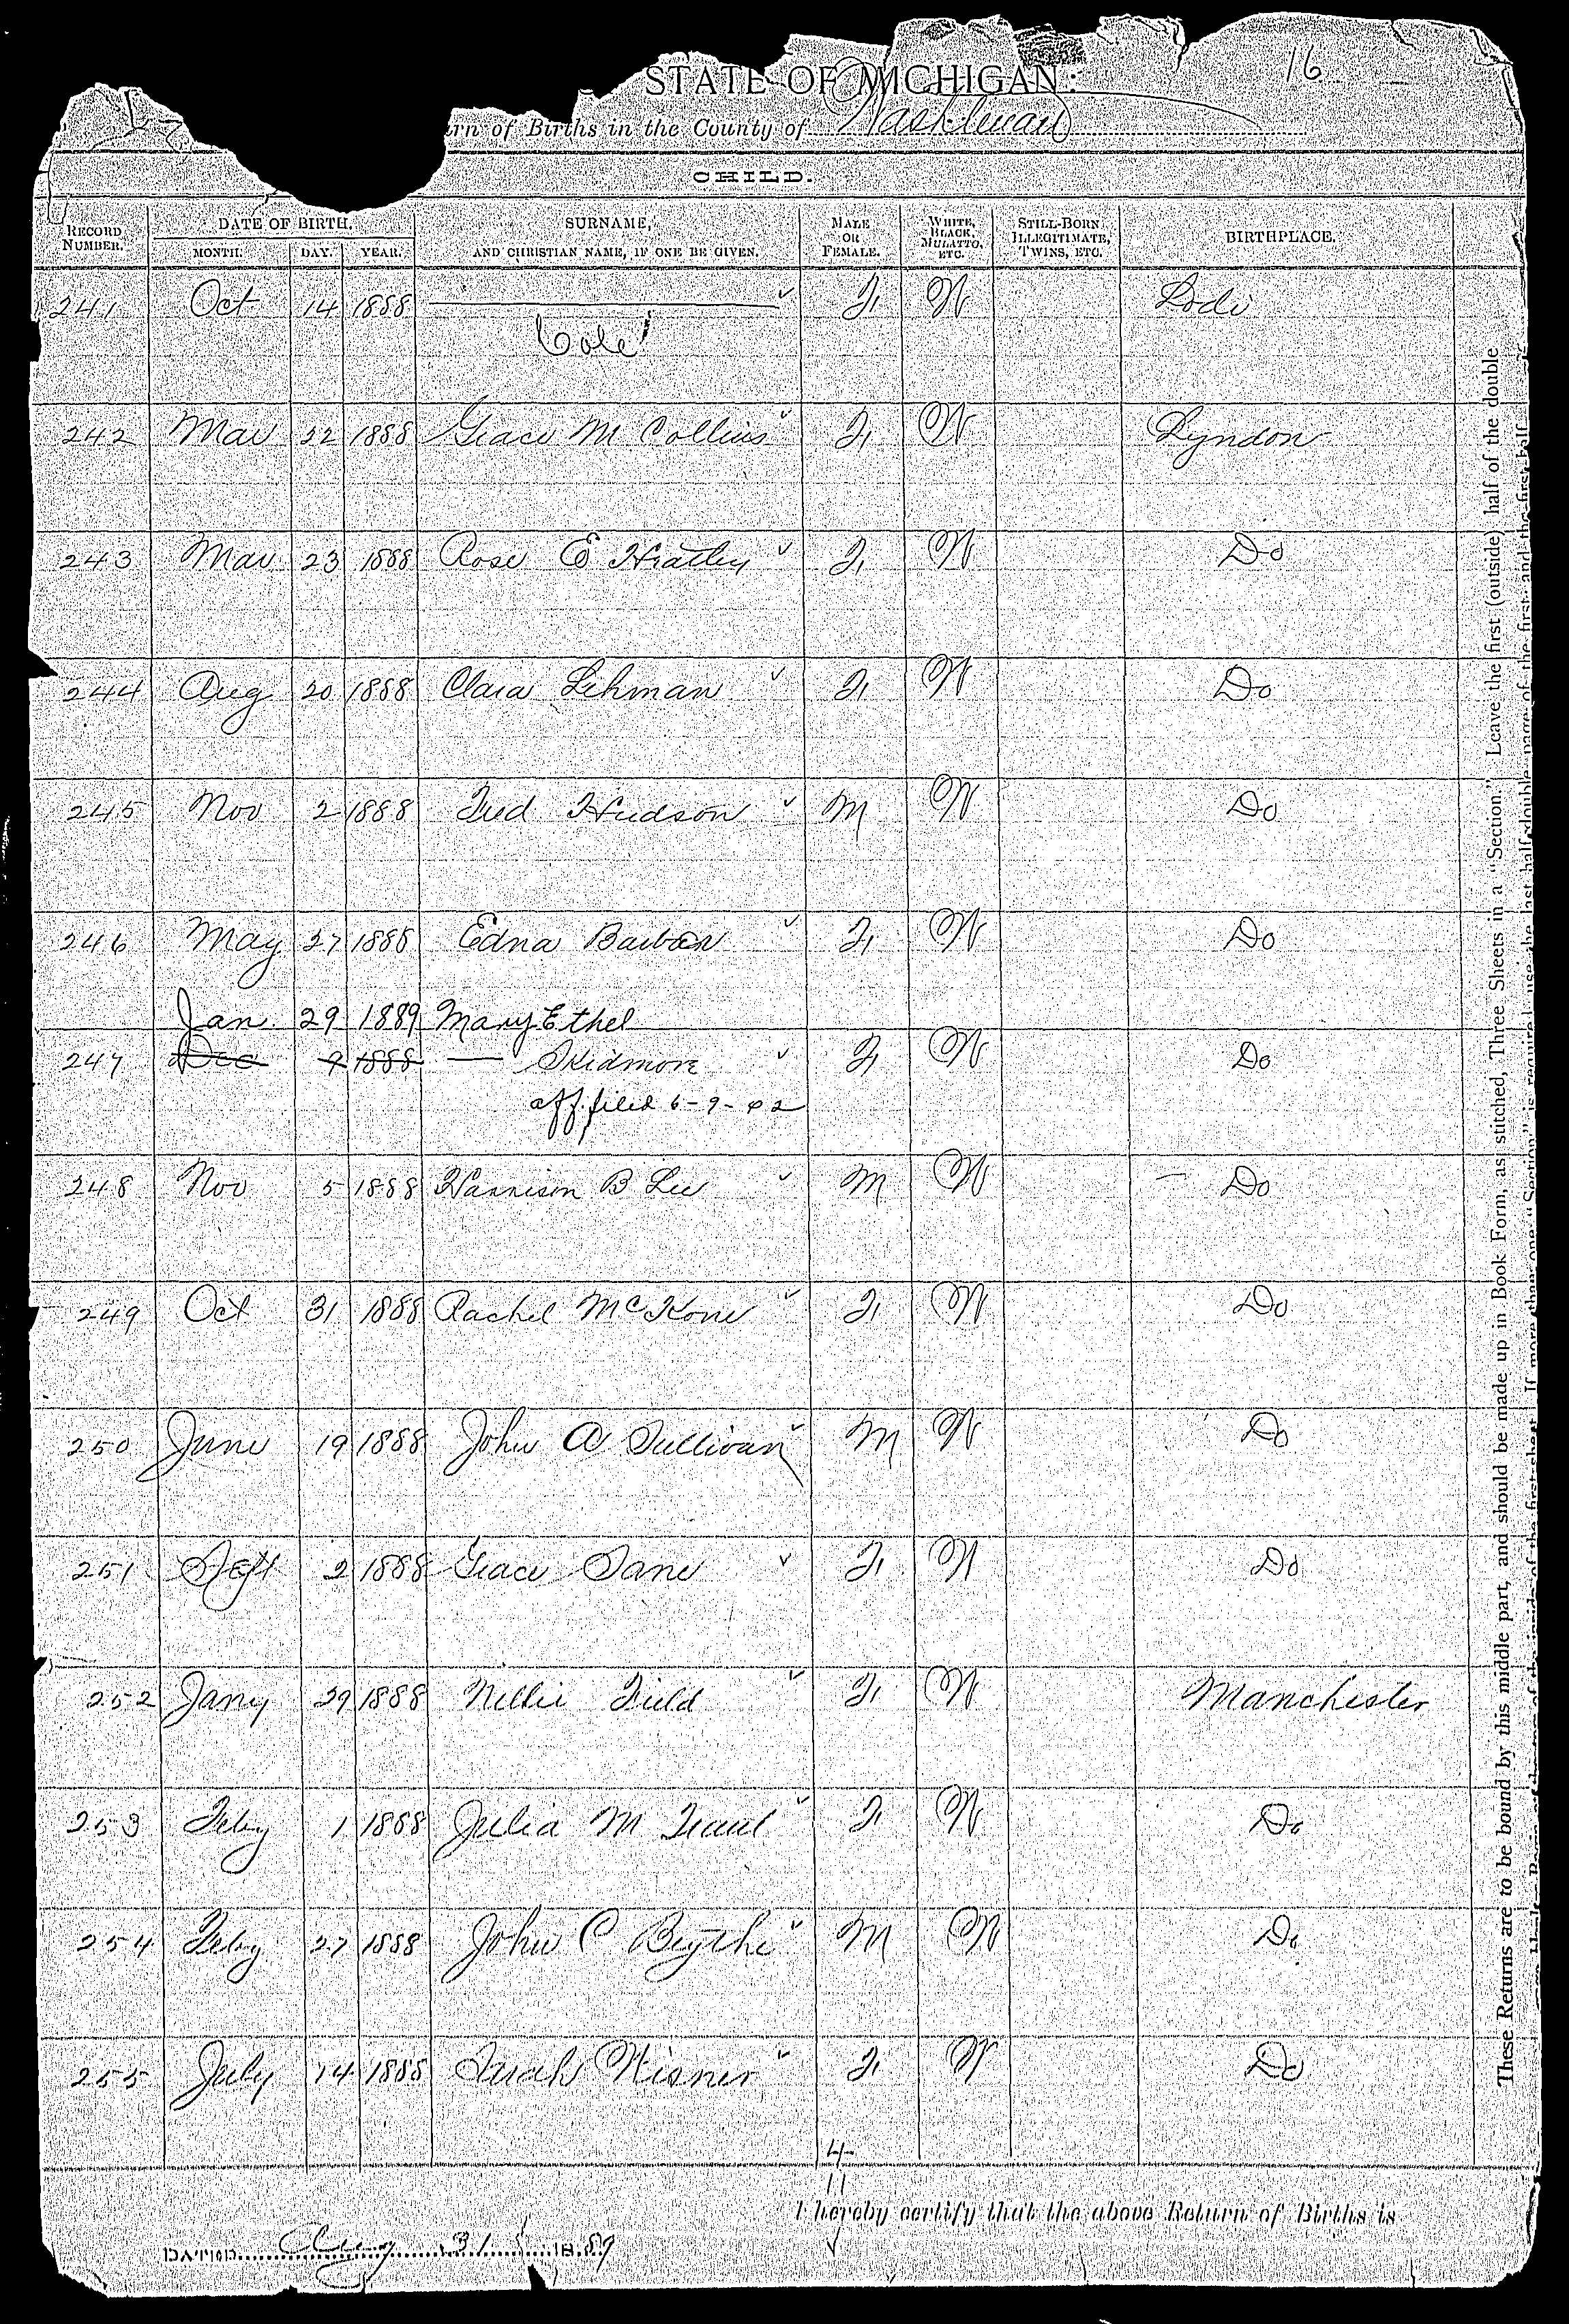 16
STATE OF MICHIGAN:
rn of Births in the County of Washtenaw
CHILD.
RECORD NUMBER. DATE OF BIRTH. MONTH. DAY. YEAR. SURNAME, AND CHRISTIAN NAME, IF ONE BE GIVEN. MALE OR FEMALE. WHITE, BLACK, MULATTO, ETC. STILL-BORN, ILLEGITIMATE, TWINS, ETC. BIRTHPLACE.
241 Oct 14 1888 F W Lodi
Cole
242 Mar 22 1888 Grace M Collins F W Lyndon
243 Mar 23 1888 Rose E Hratley F W Do
244 Aug 20 1888 Clara Lehman F W Do
245 Nov 2 1888 Fred Hudson M W Do
246 May 27 1888 Edna F W Do
Jan. 29 1889 Mary Ethel
247 Dec 9 1888 — Skidmore F W Do
aff. filed 6-9-02
248 Nov 5 1888 Harrison B Lee M W Do
249 Oct 31 1888 Rachel McKone F W Do
250 June 19 1888 John A Sullivan M W Do
251 Sept 2 1888 Grace Sane F W Do
252 Jany 29 1888 Nellie Field F W Manchester
253 Feby 1 1888 Julia M F W Do
254 Feby 27 1888 John C Blythe M W Do
255 July 14 1888 Sarah Wisner F W Do
4
11
I hereby certify that the above Return of Births is
DATED Aug 31 1889
These Returns are to be bound by this middle part, and should be made up in Book Form, as stitched, Three Sheets in a "Section." Leave the first (outside) half of the double